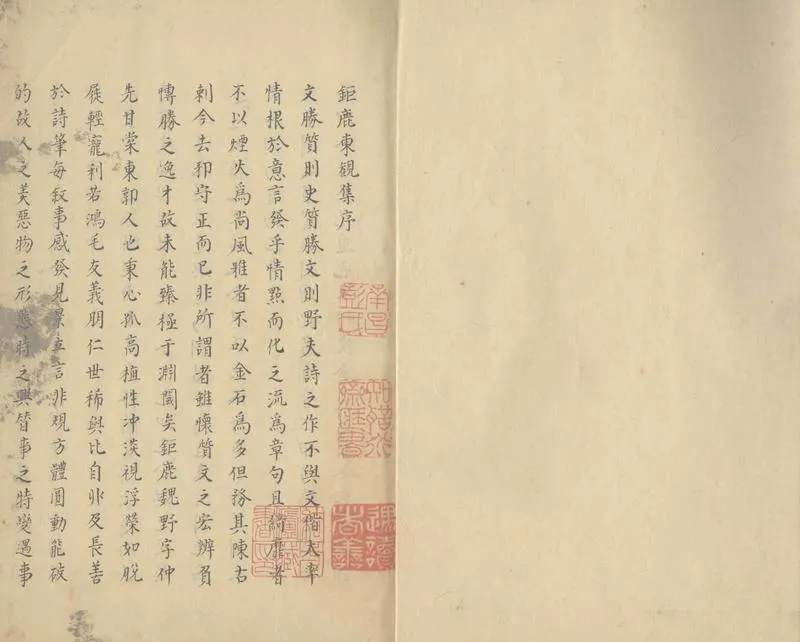 鉅鹿東觀集序
文勝質則史質勝文則野夫詩之作不與文偕大率
情根於意言發乎情㸃而化之流爲章句且綺靡者
不以煙火爲尚風雅者不以金石爲多但務其陳古
刺今去邪守正而已非所謂者雖懷質文之宏辨負
博勝之逸才故未能臻極于淵閫矣鉅鹿魏野字仲
先甘棠東郭人也秉心孤高植性沖淡視浮榮如脫
屣輕寵利若鴻毛友義朋仁世稀與比自丱及長善
於詩筆每叙事感發見景立言非規方體圓動能破
的故人之美惡物之形態時之興替事之時變遇事
南昌彭氏
知聖道齋藏書
遇讀者善